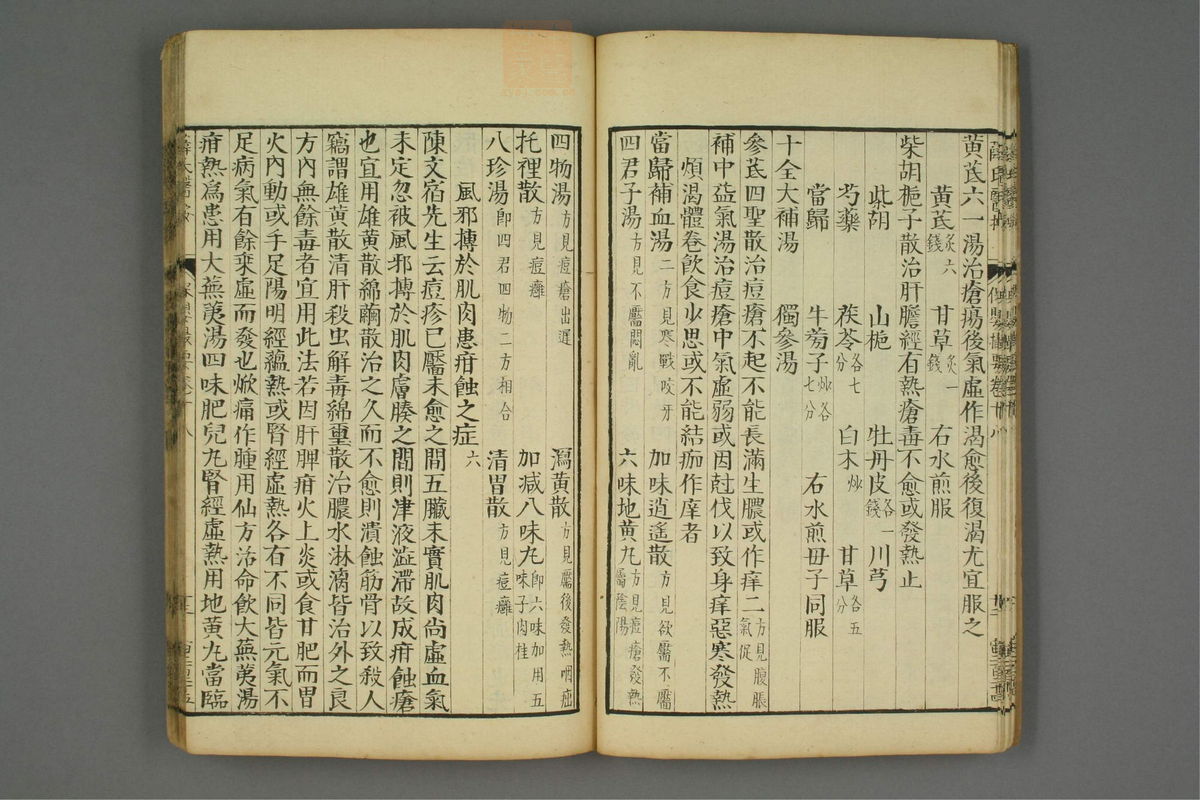 黃茋六一湯治瘡瘍後氣虛作渴愈後復渴尤宜服之
黃茋炙六錢 甘草炙一錢 右水煎服
柴胡梔子散治肝膽經有熱瘡毒不愈或發熱止
柴胡 山梔 牡丹皮各一錢 川芎
芍藥 茯苓各七分 白朮炒 甘草各五分
當歸 牛蒡子炒各七分 右水煎母子同服
十全大補湯 獨參湯
參茋四聖散治痘瘡不起不能長滿生膿或作痒二方見腹脹氣促
補中益氣湯治痘瘡中氣虛弱或因尅伐以致身痒惡寒發熱
煩渴體倦飲食少思或不能結痂作痒者
當歸補血湯二方見寒戰咬牙 加味逍遙散方見欲靨不靨
四君子湯方見不靨悶亂 六味地黃丸方見痘瘡發熱屬陰陽
四物湯方見痘瘡出遲 瀉黃散方見靨後發熱咽症
托裡散方見痘癰 加減八味丸即六味加用五味子肉桂
八珍湯即四君四物二方相合 清胃散方見痘癰
風邪搏於肌肉患疳蝕之症六
陳文宿先生云痘疹已靨未愈之間五臟未實肌肉尚虛血氣
未定忽被風邪搏於肌肉膚腠之間則津液澁滯故成疳蝕瘡
也宜用雄黃散綿繭散治之久而不愈則潰蝕筋骨以致殺人
竊謂雄黃散清肝殺虫解毒綿璽散治膿水淋漓皆治外之良
方內無餘毒者宜用此法若因肝脾疳火上炎或食甘肥而胃
火內動或手足陽明經蘊熱或腎經虛熱各有不同皆元氣不
足病氣有餘乘虛而發也焮痛作腫用仙方治命飲大蕪荑湯
疳熱為患用大蕪荑湯四味肥兒丸腎經虛熱用地黃丸當臨